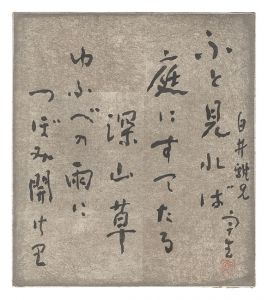 白井雅兄
ふと見れば
庭にすてたる
深山草
ゆふべの雨に
つぼみ開けり